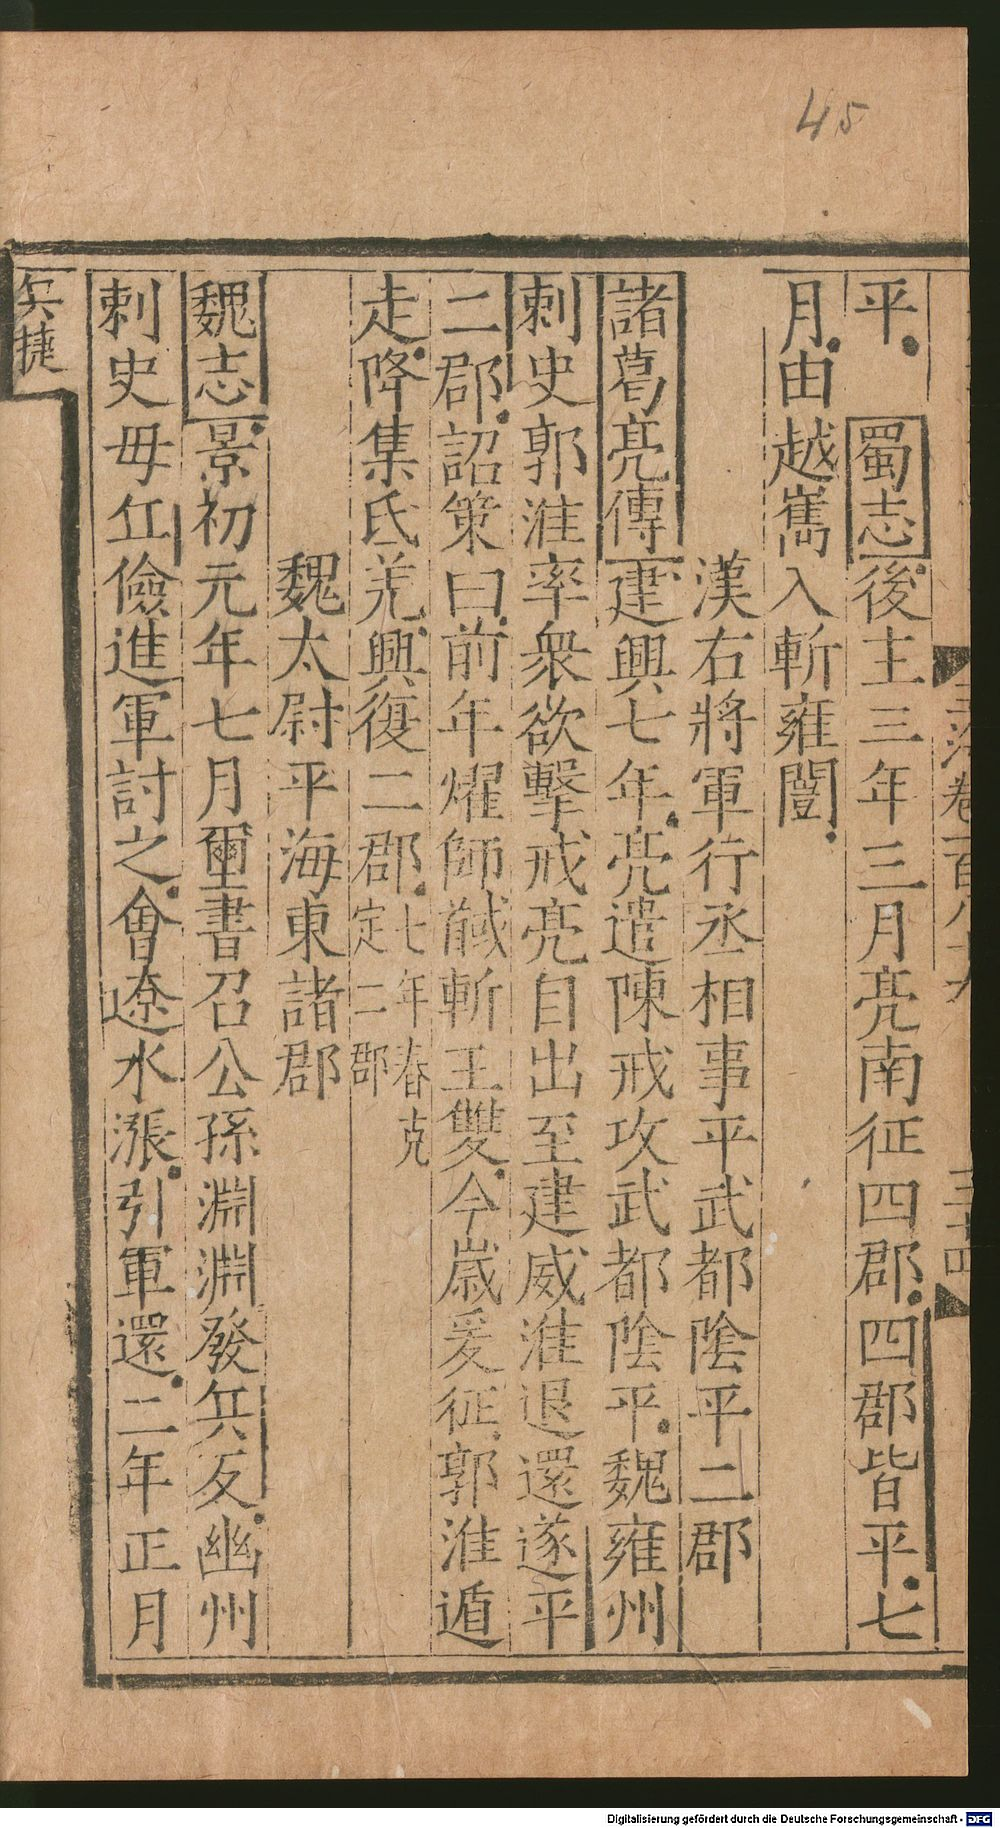 45
平蜀志後主三年三月亮南征四郡四郡皆平七
月由越嶲入斬雍闓
漢右將軍行丞相事平武都陰平二郡
諸葛亮傳建興七年亮遣陳戒攻武都陰平魏雍州
刺史郭淮率衆欲擊戒亮自出至建威淮退還遂平
二郡詔策曰前年燿師馘斬王雙今歲爰征郭淮遁
走降集氐羌興復二郡七年春克定二郡
魏太尉平海東諸郡
魏志景初元年七月璽書召公孫淵淵發兵反幽州
刺史毋丘儉進軍討之會遼水漲引軍還二年正月
兵捷
Digitalisierung gefördert durch die Deutsche Forschungsgemeinschaft - DFG